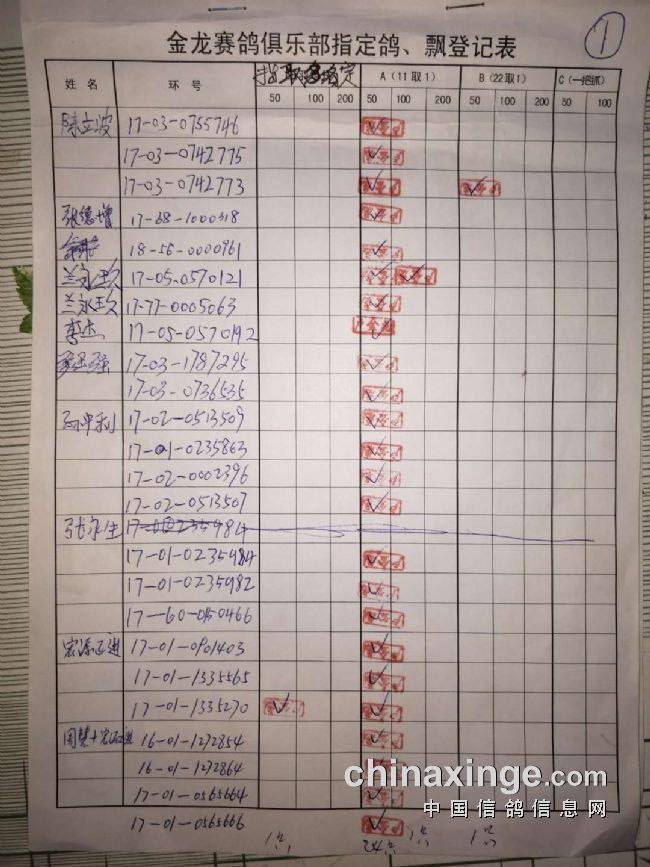 ①
金龙赛鸽俱乐部指定鸽、飘登记表
姓名 环号 A(11取1) B(22取1) C(一把抓)
50 100 200 50 100 200 50 100 200 50 100
陈立波 17-03-0735746
17-03-0742775
17-03-0742773
张德增 17-68-1000318
18-56-0000961
兰永玖 17-05-0570121
兰永玖 17-77-0005063
李杰 17-05-0570192
17-03-1787295
17-03-0736535
孙平利 17-02-0513509
17-01-0235863
17-02-0002396
17-02-0513507
张永生
17-01-0235984
17-01-0235982
17-60-0150466
宏源迅进 17-01-0901403
17-01-1335565
17-01-1335270
16-01-1272854
16-01-1272864
17-01-0565664
17-01-0565666
chinaxinge.com
中国信鸽信息网